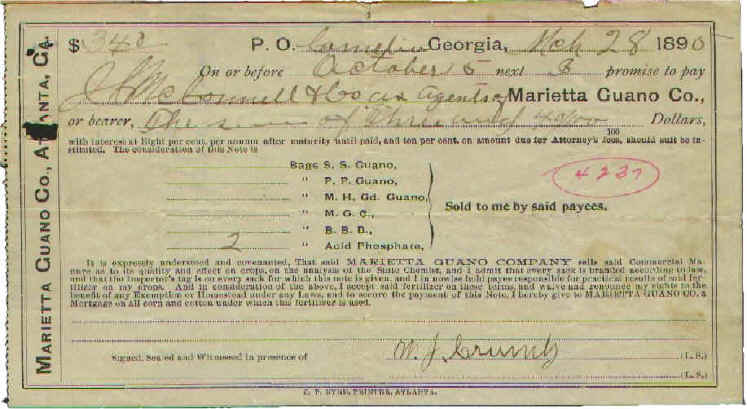 MARIETTA GUANO CO., ATLANTA, GA.
$ 340 P. O. Georgia, Mch 28 1890
On or before October 5 next I promise to pay
J. McConnell & Co as Agents of Marietta Guano Co.,
or bearer, The sum of Three and 40/100 Dollars,
with interest at Eight per cent. per annum after maturity until paid, and ten per cent. on amount due for Attorney's fees, should suit be in-
stituted. The consideration of this Note is
Bags S. S. Guano,
" P. P. Guano,
" M. H. Gd. Guano,
Sold to me by said payees.
4237
" M. G. C.,
" B. B. B.,
2 " Acid Phosphate,
It is expressly understood and covenanted, That said MARIETTA GUANO COMPANY sells said Commercial Ma-
nure as to its quality and effect on crops, on the analysis of the State Chemist, and I admit that every sack is branded according to law,
and that the Inspector's tag is on every sack for which this note is given, and I in no wise hold payee responsible for practical results of said fer-
tilizer on my crops. And in consideration of the above, I accept said fertilizer on these terms, and waive and renounce my rights to the
benefit of any Exemption or Homestead under any Laws, and to secure the payment of this Note, I hereby give to MARIETTA GUANO CO. a
Mortgage on all corn and cotton under which this fertilizer is used.
Signed, Sealed and Witnessed in presence of W. J. (L. S.)
(L. S.)
PRINTER, ATLANTA.